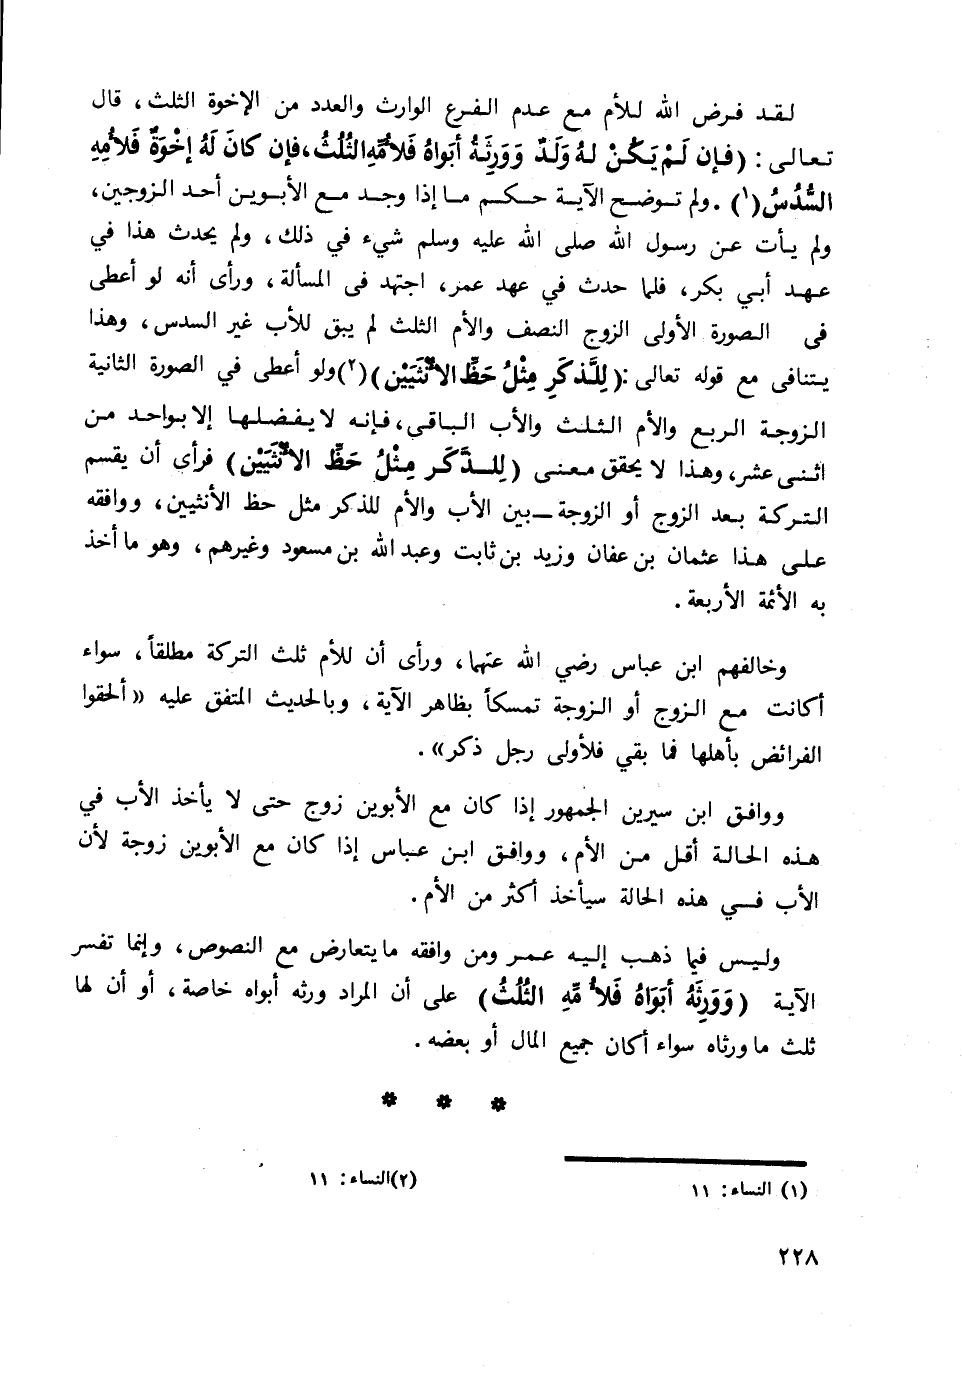 لقد فرض الله للأم مع عدم الفرع الوارث والعدد من الإخوة الثلث، قال
تعالى: (فإن لَمْ يَكُنْ لهُ وَلَدٌ وَوَرِثَهُ أبَواهُ فَلأمِّهِ الثُلُثُ، فإن كانَ لَهُ إخْوَةٌ فَلأمِهِ
السُّدُسُ(١). ولم توضح الآية حكم ما إذا وجد مع الأبوين أحد الزوجين،
ولم يأت عن رسول الله صلى الله عليه وسلم شيء في ذلك، ولم يحدث هذا في
عهد أبي بكر، فلما حدث في عهد عمر، اجتهد فى المسألة، ورأى أنه لو أعطى
فى الصورة الأولى الزوج النصف والأم الثلث لم يبق للأب غير السدس، وهذا
يتنافى مع قوله تعالى: (لِلَّذكَرِ مِثْلُ حَظِّ الأنْثَيَيْن)(٢) ولو أعطى في الصورة الثانية
الزوجة الربع والأم الثلث والأب الباقى، فإنه لا يفضلها إلا بواحد من
اثنى عشر، وهذا لا يحقق معنى (لِلذَّكَرِ مِثْلُ حَظِّ الأنْثَيَيْن) فرأى أن يقسم
التركة بعد الزوج أو الزوجة ــ بين الأب والأم للذكر مثل حظ الأنثيين، ووافقه
على هذا عثمان بن عفان وزيد بن ثابت وعبد الله بن مسعود وغيرهم، وهو ما أخذ
به الأئمة الأربعة.
وخالفهم ابن عباس رضي الله عنهما، ورأى أن للأم ثلث التركة مطلقاً، سواء
أكانت مع الزوج أو الزوجة تمسكاً بظاهر الآية، وبالحديث المتفق عليه «ألحقوا
الفرائض بأهلها فما بقي فلأولى رجل ذكر».
ووافق ابن سيرين الجمهور إذا كان مع الأبوين زوج حتى لا يأخذ الأب في
هذه الحالة أقل من الأم، ووافق ابن عباس إذا كان مع الأبوين زوجة لأن
الأب في هذه الحالة سيأخذ أكثر من الأم.
وليس فيما ذهب إليه عمر ومن وافقه ما يتعارض مع النصوص، وإنما تفسر
الآية (وَوَرِثَهُ أبَوَاهُ فَلأمِّهِ الثُلُثُ) على أن المراد ورثه أبواه خاصة، أو أن لها
ثلث ما ورثاه سواء أكان جميع المال أو بعضه.
* * *
(١) النساء: ١١ (٢) النساء: ١١
٢٢٨